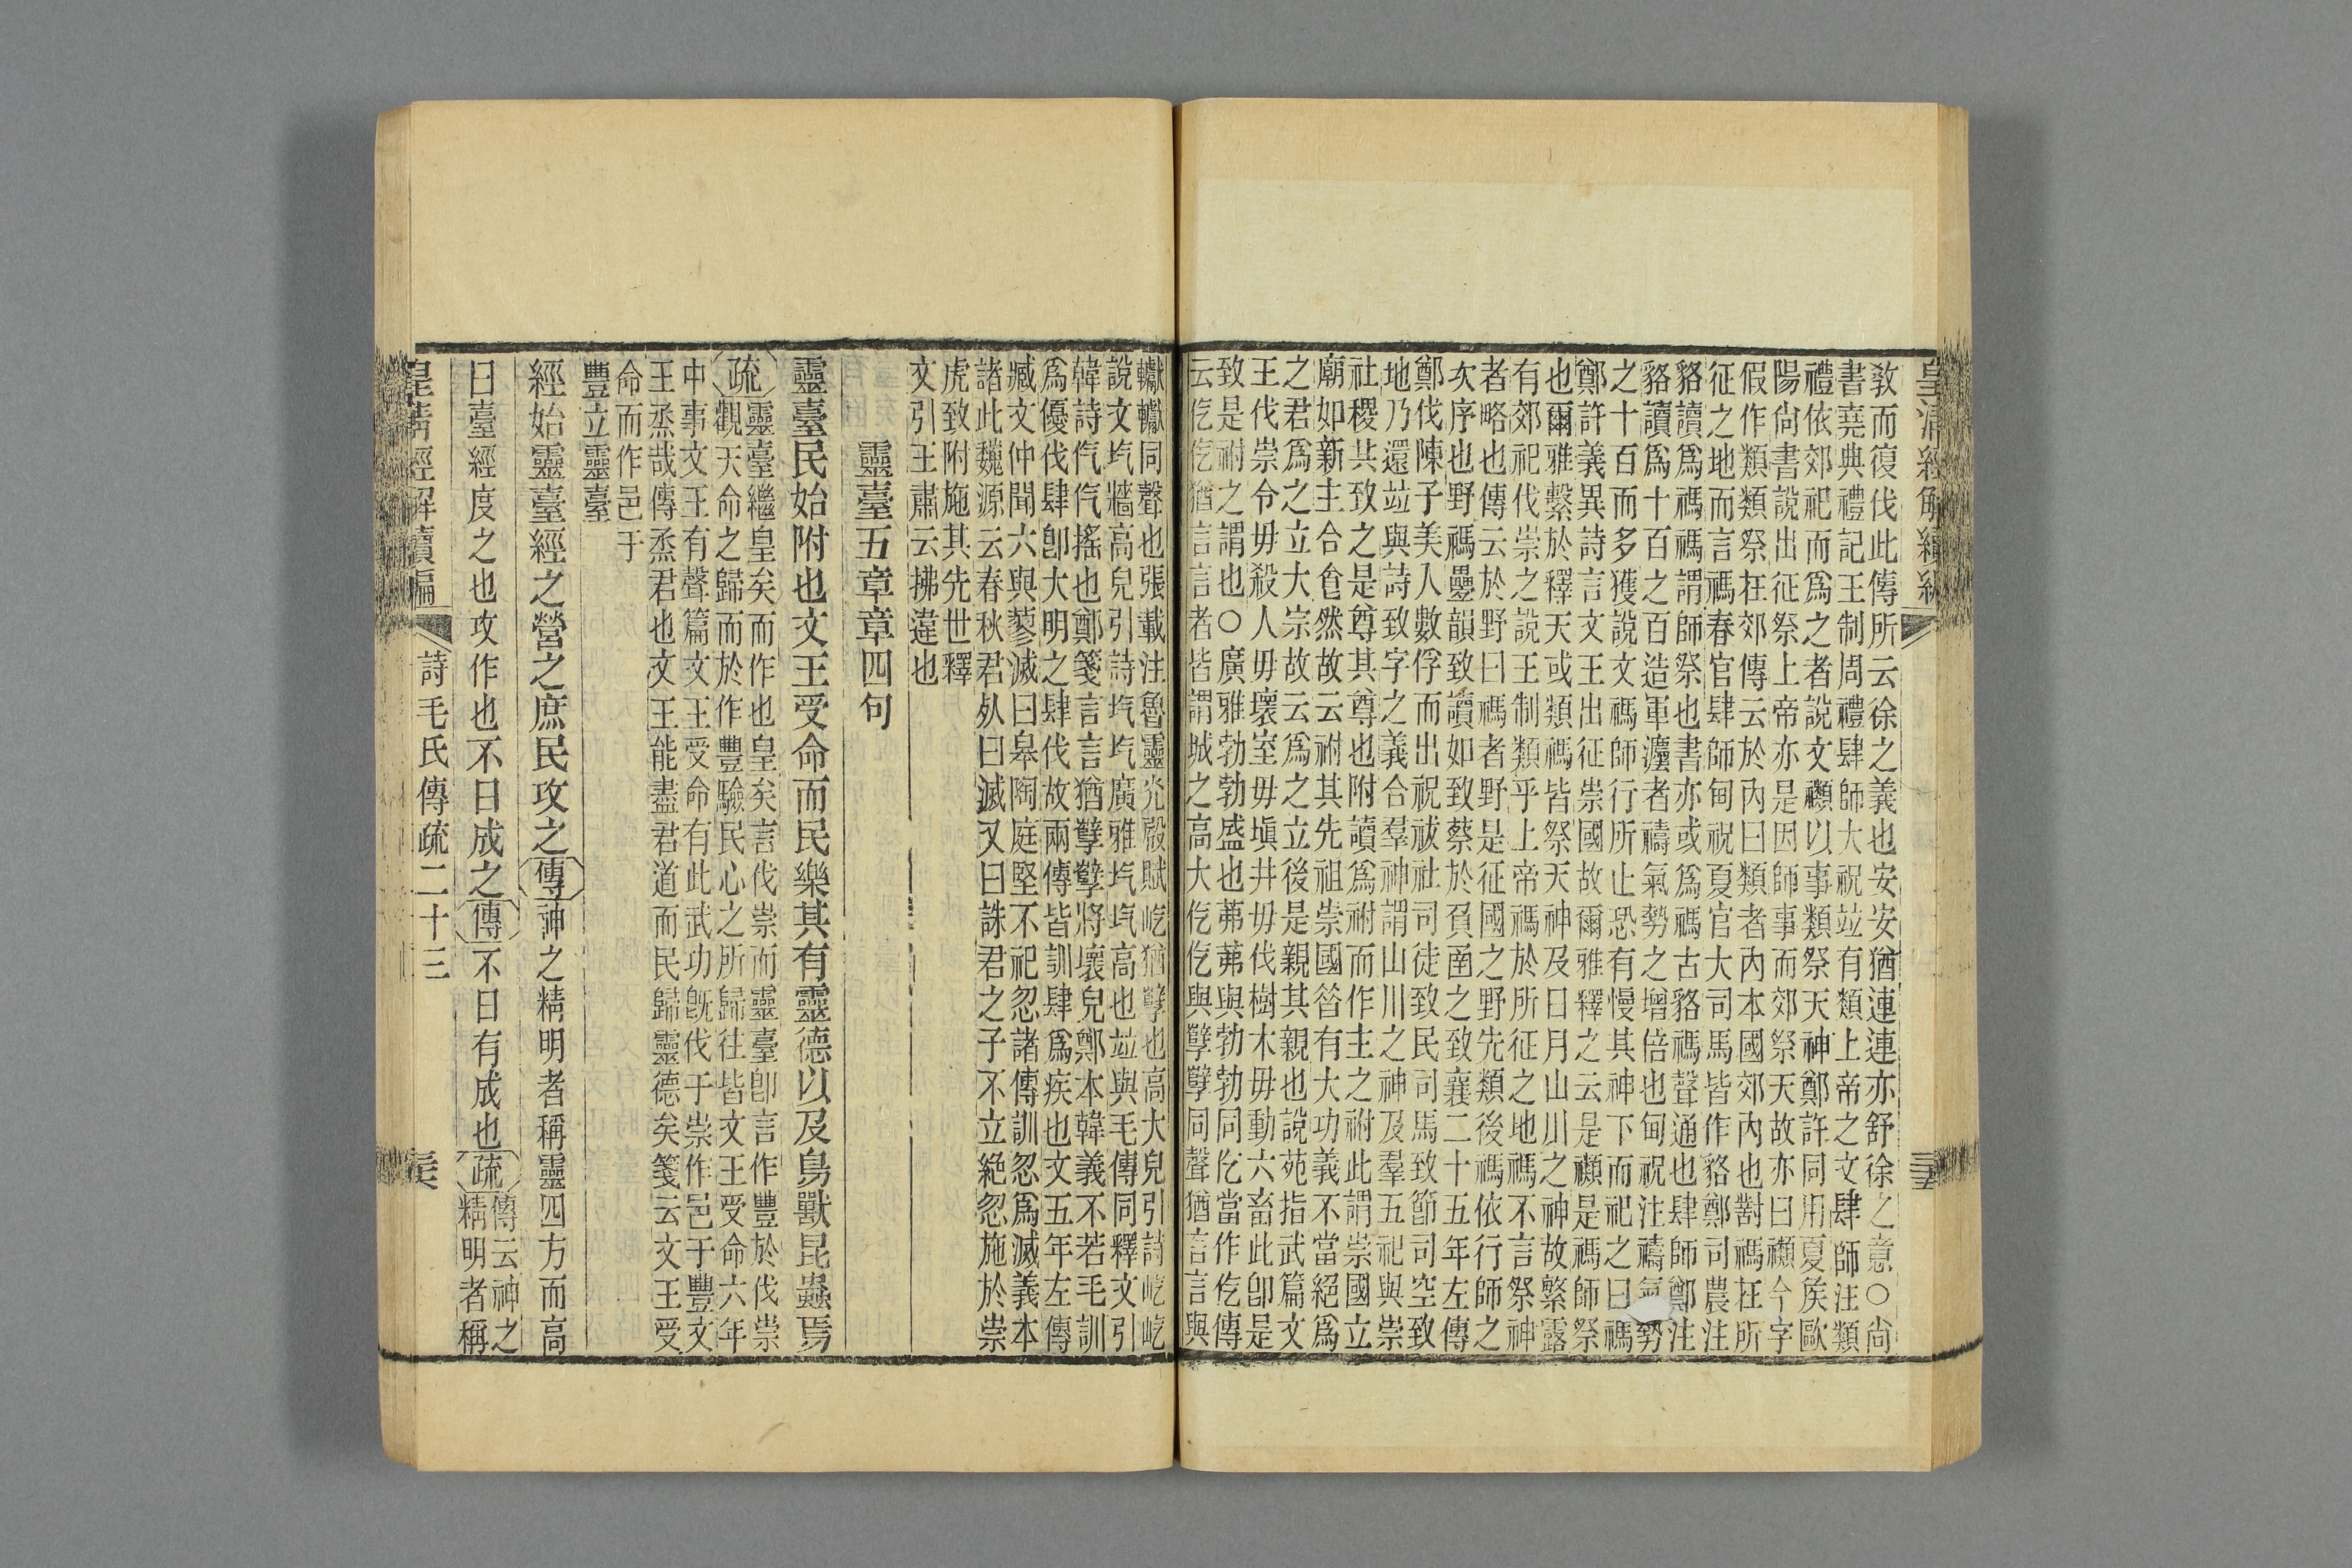 敎而復伐此傳所云徐之義也安安猶連連亦舒徐之意○尙
書堯典禮記王制周禮肆師大祝竝有類上帝之文肆師注類
禮依郊祀而爲之者說文禷以事類祭天神鄭許同用夏矦歐
陽尙書說出征祭上帝亦是因師事而郊祭天故亦曰禷今字
假作類類祭在郊傳云於內曰類者內本國郊內也對禡在所
征之地而言禡春官肆師甸祝夏官大司馬皆作貉鄭司農注
貉讀爲禡禡謂師祭也書亦或爲禡古貉禡聲通也肆師鄭注
貉讀爲十百之百造軍灋者禱氣勢之增倍也甸祝注禱氣勢
之十百而多獲說文禡師行所止恐有慢其神下而祀之曰禡
鄭許義異詩言文王出征崇國故爾雅釋之云是禷是禡師祭
也爾雅繫於釋天或類禡皆祭天神及日月山川之神故繁露
有郊祀伐崇之說王制類乎上帝禡於所征之地禡不言祭神
者略也傳云於野曰禡者野是征國之野先類後禡依行師之
次序也野禡曡韻致讀如致蔡於負函之致襄二十五年左傳
鄭伐陳子美入數俘而出祝祓社司徒致民司馬致節司空致
地乃還竝與詩致字之義合羣神謂山川之神及羣五祀與崇
社稷共致之是尊其尊也附讀爲祔而作主之祔此謂崇國立
廟如新主合食然故云祔其先祖崇國咎有大功義不當絕爲
之君爲之立大宗故云爲之立後是親其親也說苑指武篇文
王伐崇令毋殺人毋壞室毋塡井毋伐樹木毋動六畜此卽是
致是祔之謂也○廣雅勃勃盛也茀茀與勃勃同仡當作仡傳
云仡仡猶言言者皆謂城之高大仡仡與孼孼同聲猶言言與
轞轞同聲也張載注魯靈光殿賦屹猶孼也高大皃引詩屹屹
說文圪牆高皃引詩圪圪廣雅圪圪高也竝與毛傳同釋文引
韓詩仡仡搖也鄭箋言言猶孼孼將壞皃鄭本韓義不若毛訓
爲優伐肆卽大明之肆伐故兩傳皆訓肆爲疾也文五年左傳
臧文仲聞六與蓼滅曰皋陶庭堅不祀忽諸傳訓忽爲滅義本
諸此魏源云春秋君殁曰滅又曰誅君之子不立絕忽施於崇
虎致附施其先世釋
文引王肅云拂違也
靈臺五章章四句
靈臺民始附也文王受命而民樂其有靈德以及鳥獸昆蟲焉
疏靈臺繼皇矣而作也皇矣言伐崇而靈臺卽言作豐於伐崇
觀天命之歸而於作豐驗民心之所歸往皆文王受命六年
中事文王有聲篇文王受命有此武功旣伐于崇作邑于豐文
王烝哉傳烝君也文王能盡君道而民歸靈德矣箋云文王受
命而作邑于
豐立靈臺
經始靈臺經之營之庶民攻之傳神之精明者稱靈四方而高
曰臺經度之也攻作也不日成之傳不日有成也疏傳云神之
精明者稱
皇淸經解續編
詩毛氏傳疏二十三